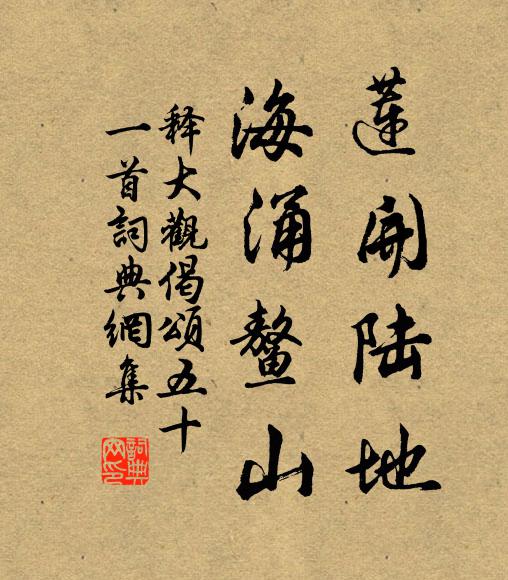 蓮開陆地
海涌鳌山
释大觀偈頌五十
一首詞典網集
詞典网印